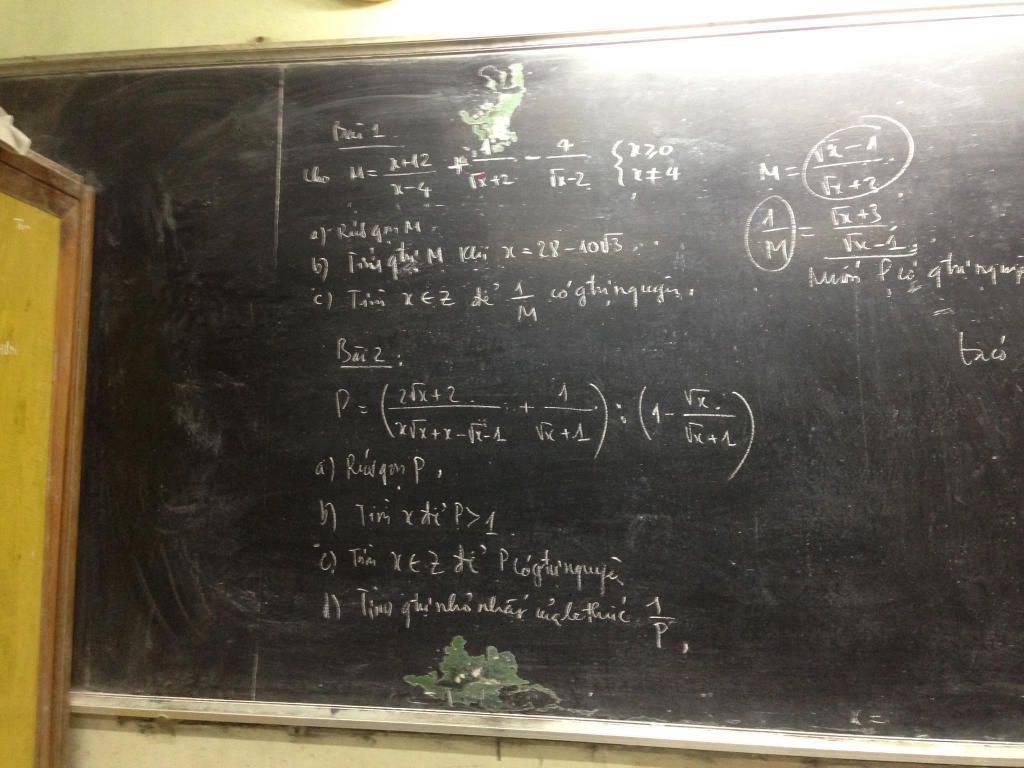 Bài 1
Cho M = \frac{x+12}{x-4} + \frac{1}{\sqrt{x}+2} - \frac{4}{\sqrt{x}-2} \begin{cases} x \geq 0 \\ x \neq 4 \end{cases}
a) Rút gọn M.
b) Tính gtrị M khi x = 28 - 10\sqrt{3}
c) Tìm x ∈ Z để \frac{1}{M} có gtrị nguyên.
Bài 2:
P = \left( \frac{2\sqrt{x}+2}{x\sqrt{x}+x-\sqrt{x}-1} + \frac{1}{\sqrt{x}+1} \right) : \left( 1 - \frac{\sqrt{x}}{\sqrt{x}+1} \right)
a) Rút gọn P,
b) Tìm x để P > 1
c) Tìm x ∈ Z để P có gtrị nguyên
d) Tìm gtrị nhỏ nhất của b thức \frac{1}{P},
M = \frac{\sqrt{x}-1}{\sqrt{x}+2}
\frac{1}{M} = \frac{\sqrt{x}+3}{\sqrt{x}-1}
Muốn P có gtrị
ta có
x =